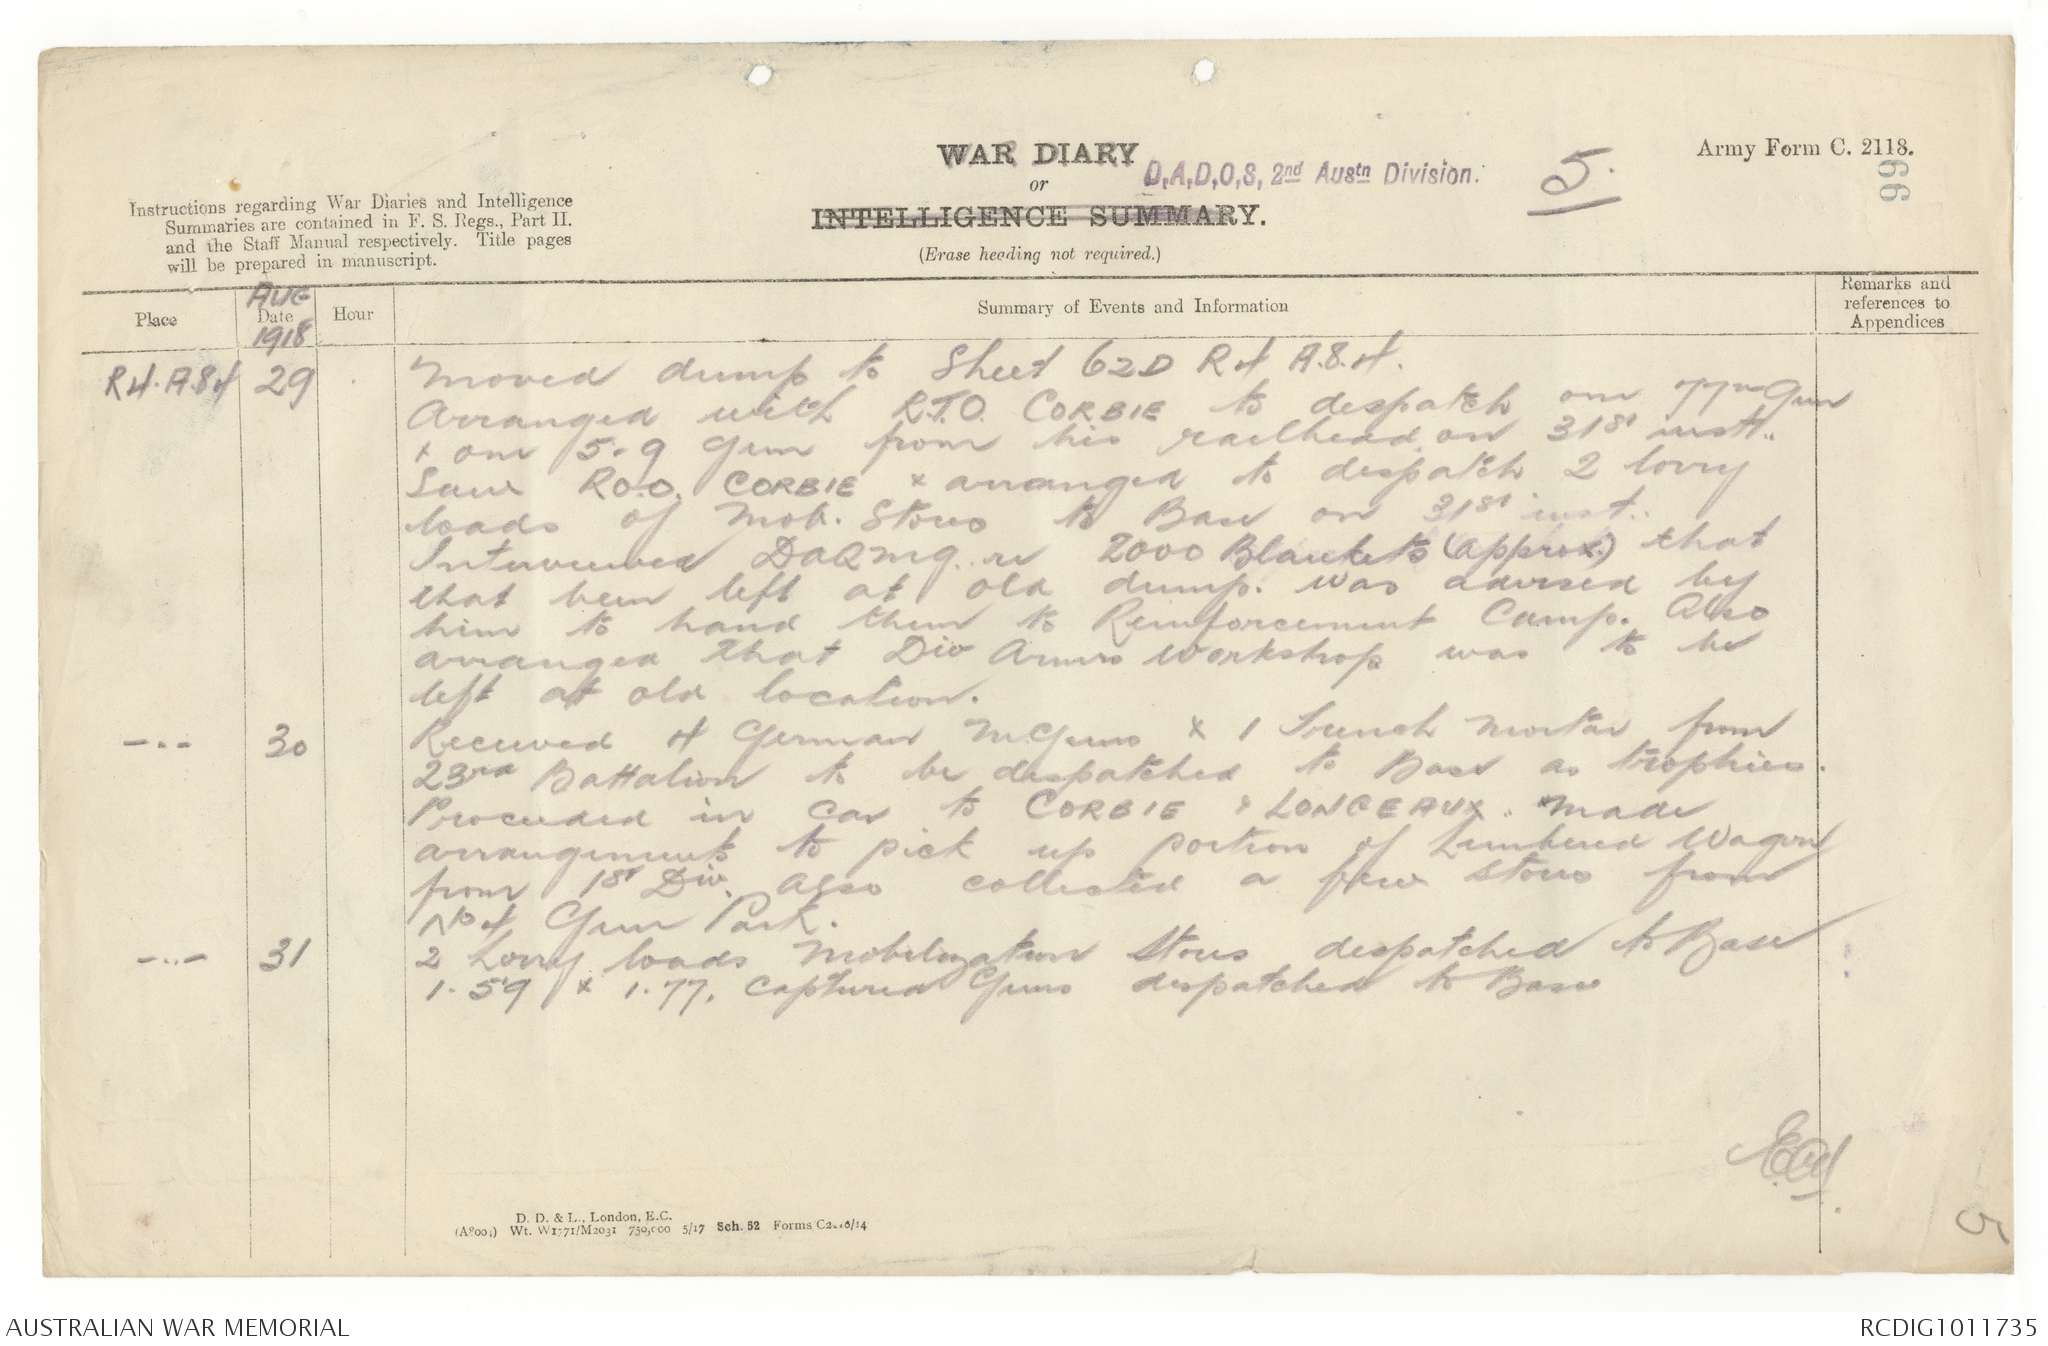 WAR DIARY
or
INTELLIGENCE SUMMARY.
(Erase heading not required.)
D,A,D,O,S, 2nd Austn Division.
5.
Army Form C. 2118.
99
Instructions regarding War Diaries and Intelligence
Summaries are contained in F. S. Regs., Part II.
and the Staff Manual respectively. Title pages
will be prepared in manuscript.
Place
AUG
Date
1918
Hour
Summary of Events and Information
Remarks and
references to
Appendices
R4.A.8.4 29 Moved dump to Sheet 62D R4 A.8.4.
Arranged with R.T.O. CORBIE to despatch one 77m Gun
x one 5.9 Gun from his railhead on 31st inst.
Saw R.O.O. CORBIE x arranged to despatch 2 lorry
loads of Mob. Stores to Base on 31st inst.
Interviewed DAQMG. re 2000 Blankets (approx.) that
that been left at old dump. was advised by
him to hand them to Reinforcement Camp. Also
arranged that Div Armrs Workshop was to be
left at old location.
-..- 30 Received 4 German M.Guns x 1 Trench Mortar from
23rd Battalion to be despatched to Base as trophies.
Proceeded in car to CORBIE & LONGEAUX. Made
arrangements to pick up portion of Limbered Wagon
from 1st Div. Also collected a few Stores from
No 4 Gun Park.
-..- 31 2 Lorry loads Mobilization Stores despatched to Base
1. 59 x 1. 77, captured Guns despatched to Base
D. D. & L., London, E.C.
Wt. W1771/M2031 750,000 5/17 Sch. 52 Forms C2118/14
AUSTRALIAN WAR MEMORIAL
RCDIG1011735